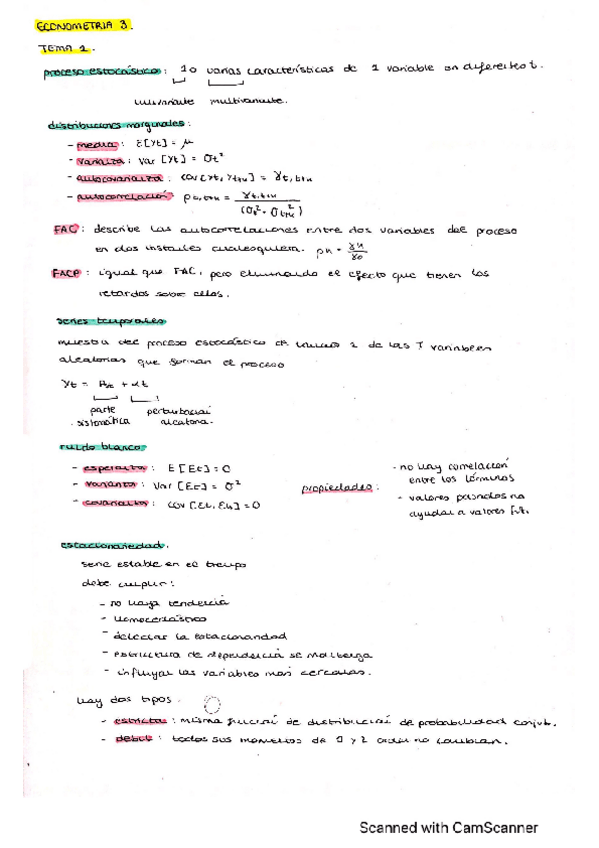 ECONOMETRIA 3.
TEMA 1.
proceso estocástico: 1 o varias características de 1 variable en diferentes t.
univariante multivariante.
distribuciones marginales:
- media: E[Yt] = μ
- varianza: Var [Yt] = σt²
- autocovarianza: cov [Yt, Yt+k] = γt,t+k
- autocorrelación ρt,t+k = γt,t+k / (σt² · σt+k²)
FAC: describe las autocorrelaciones entre dos variables del proceso
en dos instantes cualesquiera. ρk = γk / γ0
FACP: igual que FAC, pero eliminando el efecto que tienen los
retardos sobre ellas.
series temporales
muestra del proceso estocástico de tamaño 1 de las T variables
aleatorias que forman el proceso
Yt = μt + ut
parte perturbación
sistemática aleatoria.
ruido blanco
- esperanza: E[εt] = 0
- varianza: Var [εt] = σ²
- covarianza: cov [εt, εk] = 0
propiedades:
- no hay correlación
entre los términos
- valores pasados no
ayudan a valores fut.
estacionariedad.
serie estable en el tiempo
debe cumplir:
- no haya tendencia
- homocedástico
- detectar la estacionalidad
- estructura de dependencia se mantenga
- influyan las variables más cercanas.
hay dos tipos.
- estricta: misma función de distribución de probabilidad conjt.
- débil: todos sus momentos de 1 y 2 orden no cambian.
Scanned with CamScanner